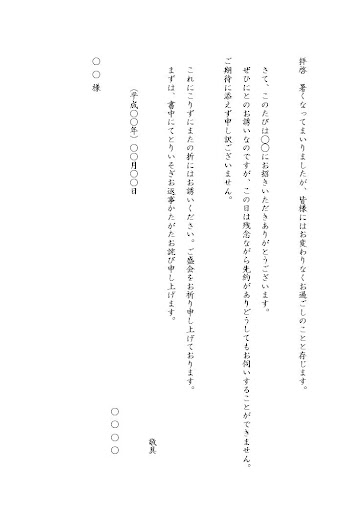 拝啓　暑くなってまいりましたが、皆様にはお変わりなくお過ごしのことと存じます。
さて、このたびは〇〇にお招きいただきありがとうございます。
ぜひにとのお誘いなのですが、この日は残念ながら先約がありどうしてもお伺いすることができません。
ご期待に添えず申し訳ございません。
これにこりずにまたの折にはお誘いください。ご盛会をお祈り申し上げております。
まずは、書中にてとりいそぎお返事かたがたお詫び申し上げます。
敬具
（平成〇〇年）〇〇月〇〇日
〇〇〇〇
〇〇様